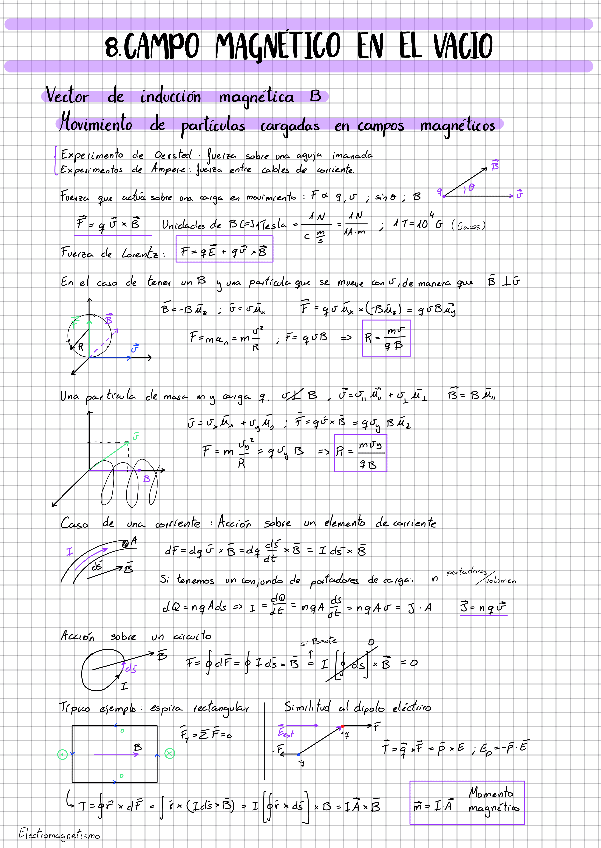 8. CAMPO MAGNÉTICO EN EL VACIO
Vector de inducción magnética B
Movimiento de partículas cargadas en campos magnéticos
Experimento de Oersted: fuerza sobre una aguja imanada
Experimentos de Ampere: fuerza entre cables de corriente.
Fuerza que actúa sobre una carga en movimiento: F ∝ q, v ; sin θ ; B
q θ B⃗ v⃗
F⃗ = q v⃗ × B⃗ Unidades de B [=] 1 Tesla = 1N / (C m/s) = 1N / 1A·m ; 1T = 10⁴ G (Gauss)
Fuerza de Lorentz: F = qE⃗ + qv⃗ × B⃗
En el caso de tener un B y una partícula que se mueve con v, de manera que B⃗ ⊥ v⃗
B⃗ = -B u⃗z ; v⃗ = v u⃗x F⃗ = q v u⃗x × (-B u⃗z) = q v B u⃗y
F = m aₙ = m v²/R ; F = q v B ⇒ R = mv / qB
R v⃗
Una partícula de masa m y carga q. v⊥̸B , v⃗ = v∥ u⃗∥ + v⊥ u⃗⊥ B⃗ = B u⃗∥
v⃗ = vₓ u⃗ₓ + vy u⃗y ; F⃗ = q v⃗ × B⃗ = q vy B u⃗z
F = m vy²/R = q vy B ⇒ R = m vy / qB
v⃗ B
Caso de una corriente: Acción sobre un elemento de corriente
I A ds⃗ B⃗
dF = dq v⃗ × B⃗ = dq ds⃗/dt × B⃗ = I ds⃗ × B⃗
Si tenemos un conjondo de portadores de carga. n portadores/volumen
dQ = nqAds ⇒ I = dQ/dt = nqA ds/dt = nqAv = J · A J⃗ = nqv⃗
Acción sobre un circuito
B⃗ ds⃗ I
F = ∮ dF⃗ = ∮ I ds⃗ × B⃗ = I [∮ ds⃗] × B⃗ = 0
Típico ejemplo: espira rectangular
B
F⃗ₜ = Σ F⃗ = 0
Similitud al dipolo eléctrico
E⃗ext F⃗
T⃗ = q r⃗ × F⃗ = p⃗ × E⃗ ; Ep = -p⃗ · E⃗
T = ∮ r⃗ × dF⃗ = ∫ r⃗ × (I ds⃗ × B⃗) = I [∮ r⃗ × ds⃗] × B = I A⃗ × B⃗
m⃗ = I A⃗ Momento magnético
Electromagnetismo